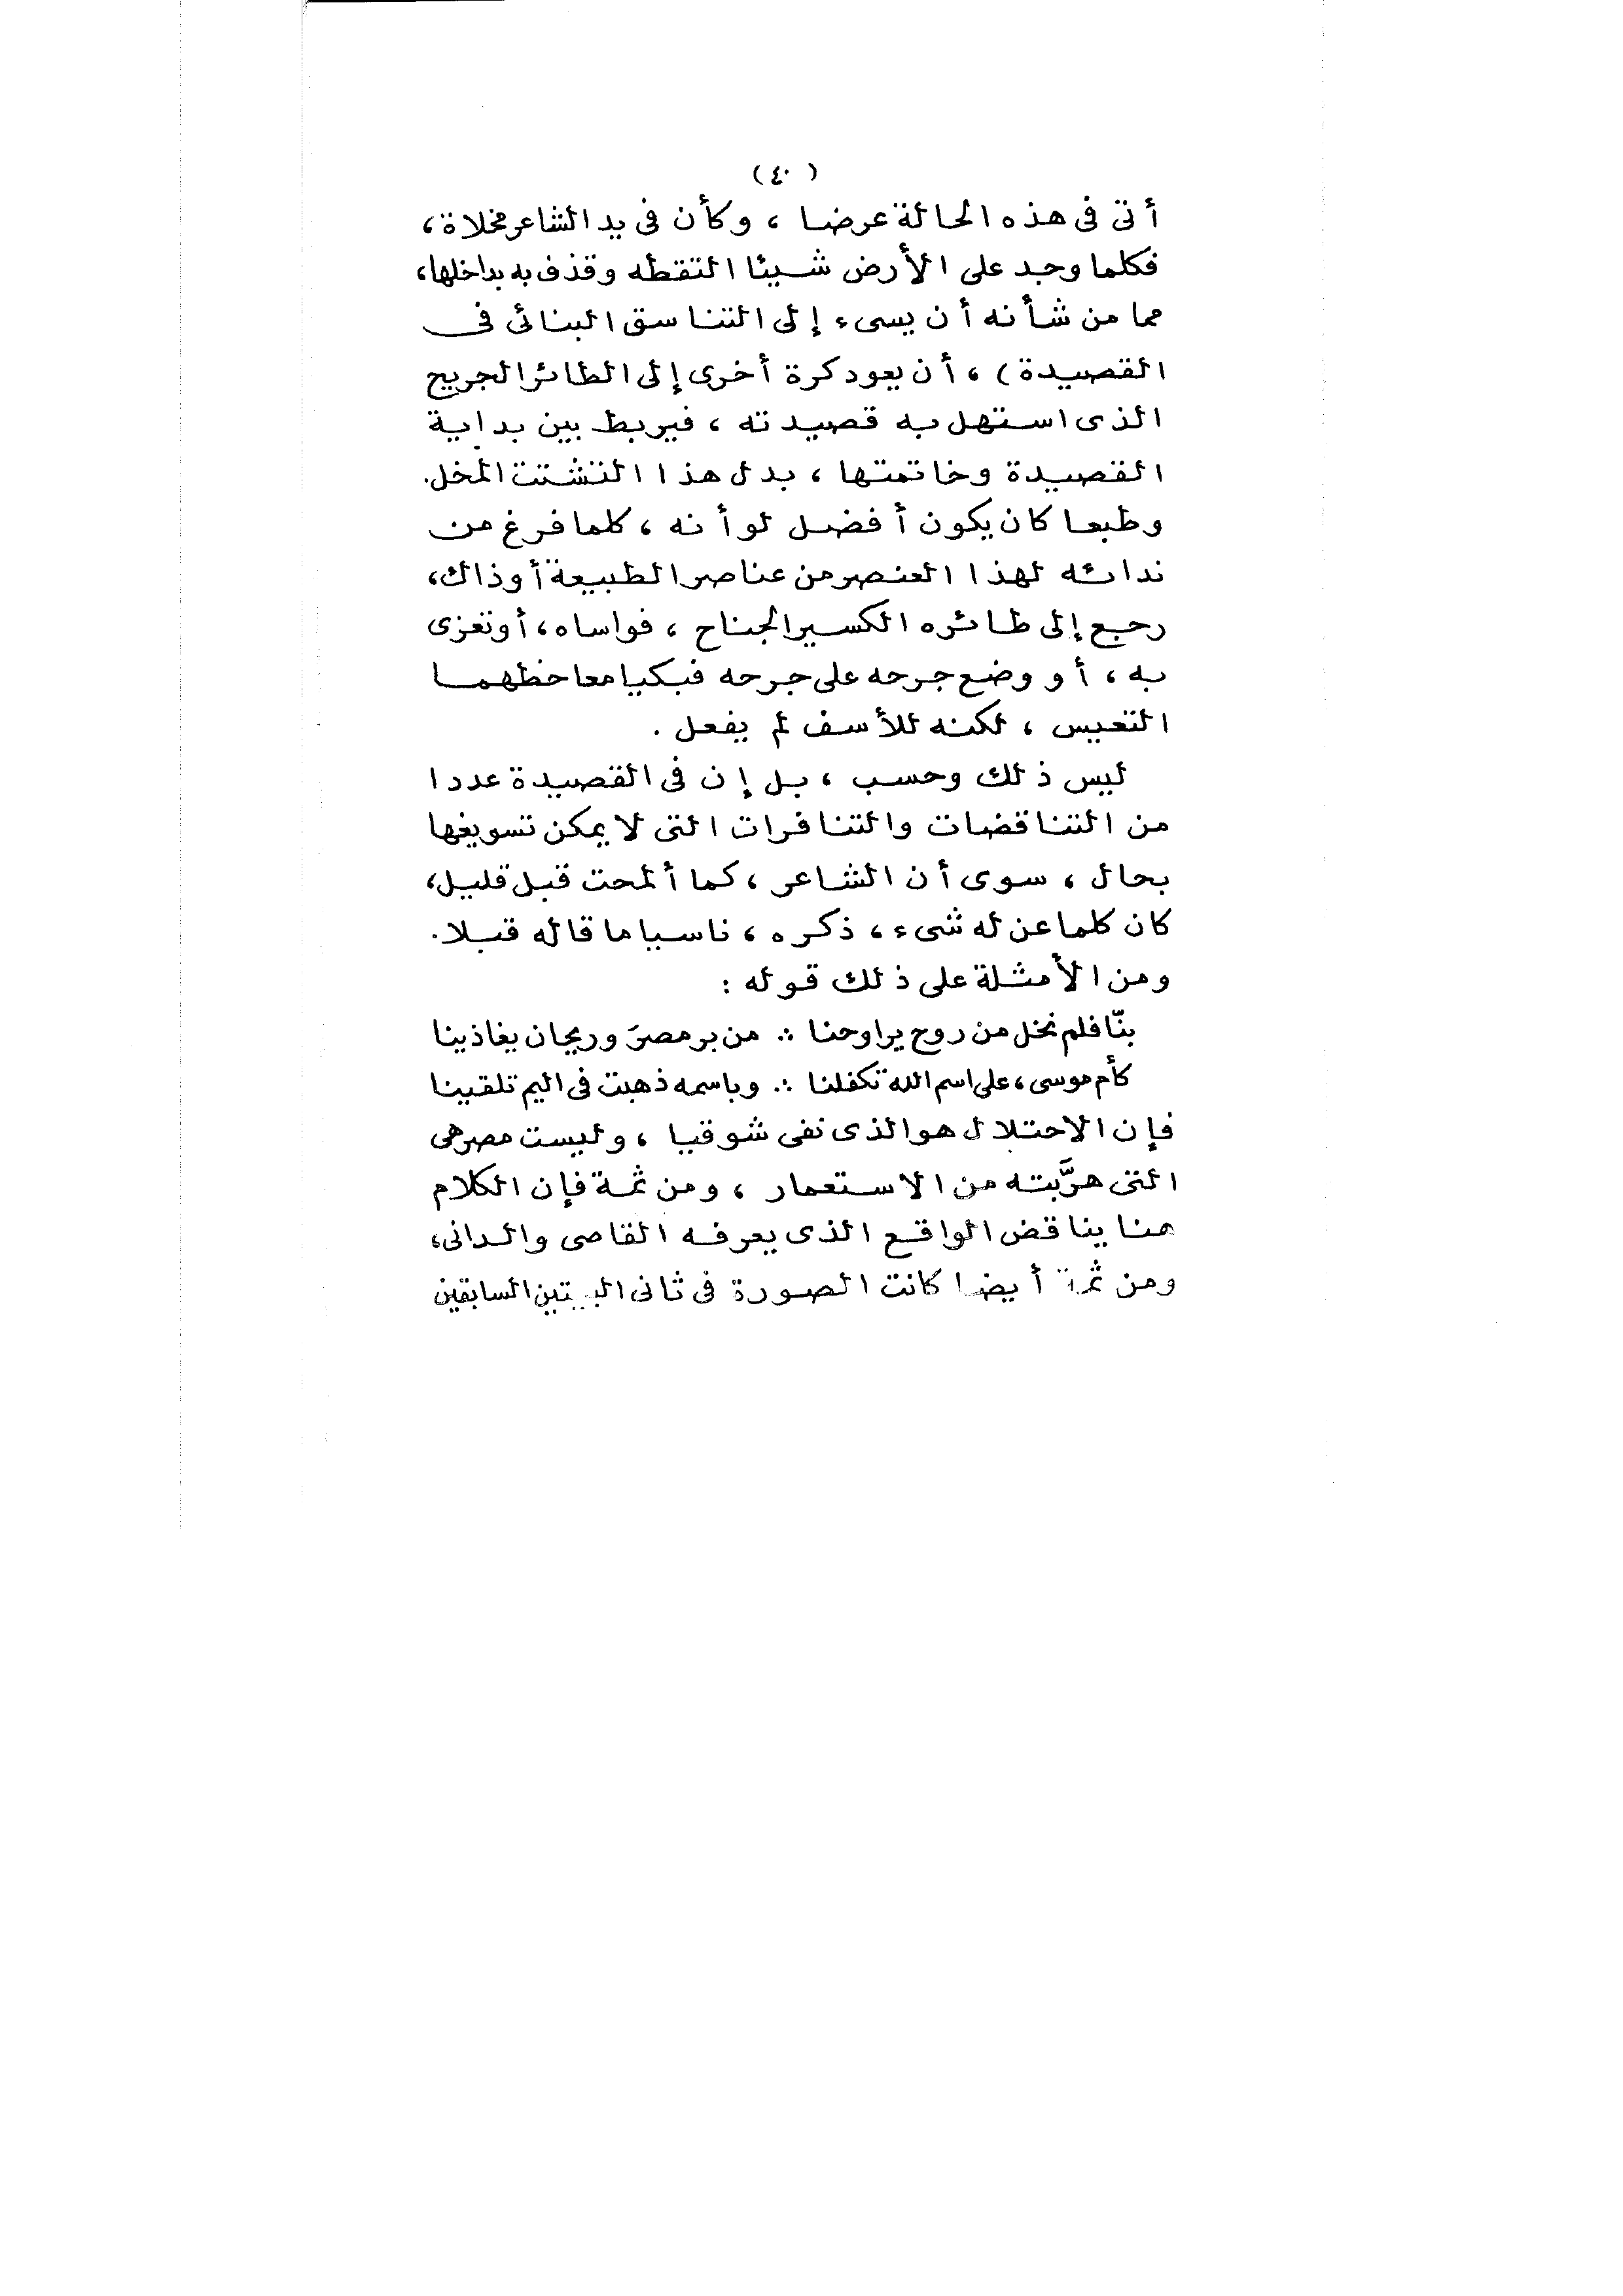 (٤٠)
أتى فى هذه الحالة عرضا ، وكأن فى يد الشاعر مخلاة ،
فكلما وجد على الأرض شيئا التقطه وقذف به بداخلها ،
مما من شأنه أن يسىء إلى التناسق البنائى فى
القصيدة ) ، أن يعود كرة أخرى إلى الطائر الجريح
الذى استهل به قصيدته ، فيربط بين بداية
القصيدة وخاتمتها ، بدل هذا التشتت المخل .
وطبعا كان يكون أفضل لو أنه ، كلما فرغ من
ندائه لهذا العنصر من عناصر الطبيعة أو ذاك ،
رجع إلى طائره الكسير الجناح ، فواساه ، أو تعزى
به ، أو وضع جرحه على جرحه فبكيا معا حظهما
التعيس ، لكنه للأسف لم يفعل .
ليس ذلك وحسب ، بل إن فى القصيدة عددا
من التناقضات والتنافرات التى لا يمكن تسويغها
بحال ، سوى أن الشاعر ، كما ألمحت قبل قليل ،
كان كلما عن له شىء ، ذكره ، ناسيا ما قاله قبلا .
ومن الأمثلة على ذلك قوله :
بنّا فلم نخل من روح يراوحنا ∴ من بر مصرَ وريحان يغاذينا
كأم موسى ، على اسم الله تكفلنا ∴ وباسمه ذهبت فى اليم تلقينا
فإن الاحتلال هو الذى نفى شوقيا ، وليست مصر هى
التى هرَّبته من الاستعمار ، ومن ثمة فإن الكلام
هنا يناقض الواقع الذى يعرفه القاصى والدانى ،
ومن ثمة أيضا كانت الصورة فى ثانى البيتين السابقين